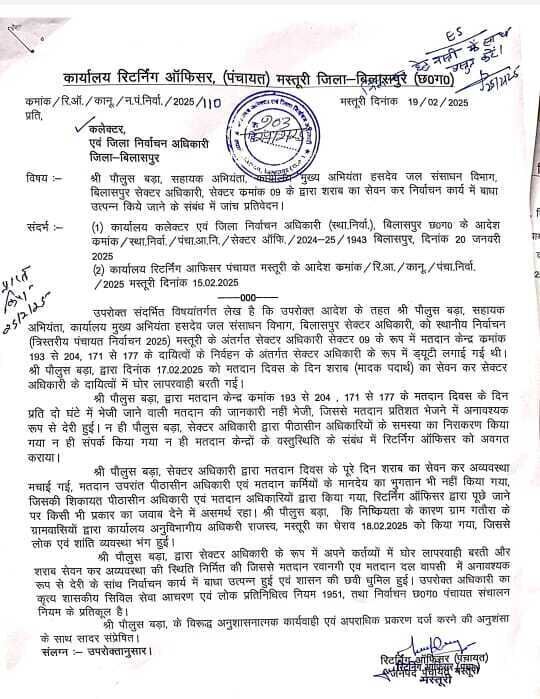 ES
कार्यालय रिटर्निंग ऑफिसर, (पंचायत) मस्तूरी जिला–बिलासपुर (छ0ग0)
कमांक/रि.ऑ./कानू/न.पं.निर्वा./2025/110 मस्तूरी दिनांक 19/02/2025
प्रति,
कलेक्टर,
एवं जिला निर्वाचन अधिकारी
जिला–बिलासपुर
विषय :– श्री पौलुस बड़ा, सहायक अभियंता, कार्यालय मुख्य अभियंता हसदेव जल संसाधन विभाग,
बिलासपुर सेक्टर अधिकारी, सेक्टर कमांक 09 के द्वारा शराब का सेवन कर निर्वाचन कार्य में बाधा
उत्पन्न किये जाने के संबंध में जांच प्रतिवेदन।
संदर्भ :– (1) कार्यालय कलेक्टर एवं जिला निर्वाचन अधिकारी (स्था.निर्वा.), बिलासपुर छ0ग0 के आदेश
कमांक/स्था.निर्वा./पंचा.आ.नि./सेक्टर ऑफि./2024–25/1943 बिलासपुर, दिनांक 20 जनवरी
2025
(2) कार्यालय रिटर्निंग आफिसर पंचायत मस्तूरी के आदेश कमांक/रि.आ./कानू/पंचा.निर्वा.
/2025 मस्तूरी दिनांक 15.02.2025
––000––
उपरोक्त संदर्भित विषयांतर्गत लेख है कि उपरोक्त आदेश के तहत श्री पौलुस बड़ा, सहायक
अभियंता, कार्यालय मुख्य अभियंता हसदेव जल संसाधन विभाग, बिलासपुर सेक्टर अधिकारी, को स्थानीय निर्वाचन
(त्रिस्तरीय पंचायत निर्वाचन 2025) मस्तूरी के अंतर्गत सेक्टर अधिकारी सेक्टर 09 के रूप में मतदान केन्द्र कमांक
193 से 204, 171 से 177 के दायित्वों के निर्वहन के अंतर्गत सेक्टर अधिकारी के रूप में ड्यूटी लगाई गई थी।
श्री पौलुस बड़ा, द्वारा दिनांक 17.02.2025 को मतदान के दिन शराब (मादक पदार्थ) का सेवन कर सेक्टर
अधिकारी के दायित्वों में घोर लापरवाही बरती गई।
श्री पौलुस बड़ा, द्वारा मतदान केन्द्र कमांक 193 से 204 , 171 से 177 के मतदान दिवस के दिन
प्रति दो घंटे में भेजी जाने वाली मतदान की जानकारी नहीं भेजी, जिससे मतदान प्रतिशत भेजने में अनावश्यक
रूप से देरी हुई। न ही पौलुस बड़ा, सेक्टर अधिकारी द्वारा पीठासीन अधिकारियों के समस्या का निराकरण किया
गया न ही संपर्क किया गया न ही मतदान केन्द्रों के वस्तुस्थिति के संबंध में रिटर्निंग ऑफिसर को अवगत
कराया।
श्री पौलुस बड़ा, सेक्टर अधिकारी द्वारा मतदान दिवस के पूरे दिन शराब का सेवन कर अव्यवस्था
मचाई गई, मतदान उपरांत पीठासीन अधिकारी एवं मतदान कर्मियों के मानदेय का भुगतान भी नहीं किया गया,
जिसकी शिकायत पीठासीन अधिकारी एवं मतदान अधिकारियों द्वारा किया गया, रिटर्निंग ऑफिसर द्वारा पूछे जाने
पर किसी भी प्रकार का जवाब देने में असमर्थ रहा। श्री पौलुस बड़ा, कि निष्क्रियता के कारण ग्राम गतौरा के
ग्रामवासियों द्वारा कार्यालय अनुविभागीय अधिकरी राजस्व, मस्तूरी का घेराव 18.02.2025 को किया गया, जिससे
लोक एवं शांति व्यवस्था भंग हुई।
श्री पौलुस बड़ा, द्वारा सेक्टर अधिकारी के रूप में अपने कर्तव्यों में घोर लापरवाही बरती और
शराब सेवन कर अव्यवस्था की स्थिति निर्मित की जिससे मतदान रवानगी एव मतदान दल वापसी में अनावश्यक
रूप से देरी के सांथ निर्वाचन कार्य में बाधा उत्पन्न हुई एवं शासन की छवी धुमिल हुई। उपरोक्त अधिकारी का
कृत्य शासकीय सिविल सेवा आचरण एवं लोक प्रतिनिधित्व नियम 1951, तथा निर्वाचन छ0ग0 पंचायत संचालन
नियम के प्रतिकूल है।
श्री पौलुस बड़ा, के विरूद्ध अनुशासनात्मक कार्यवाही एवं अपराधिक प्रकरण दर्ज करने की अनुशंसा
के साथ सादर संप्रेषित।
संलग्न :– उपरोक्तानुसार।
रिटर्निंग ऑफिसर (पंचायत)
जनपद पंचायत मस्तूरी
मस्तूरी